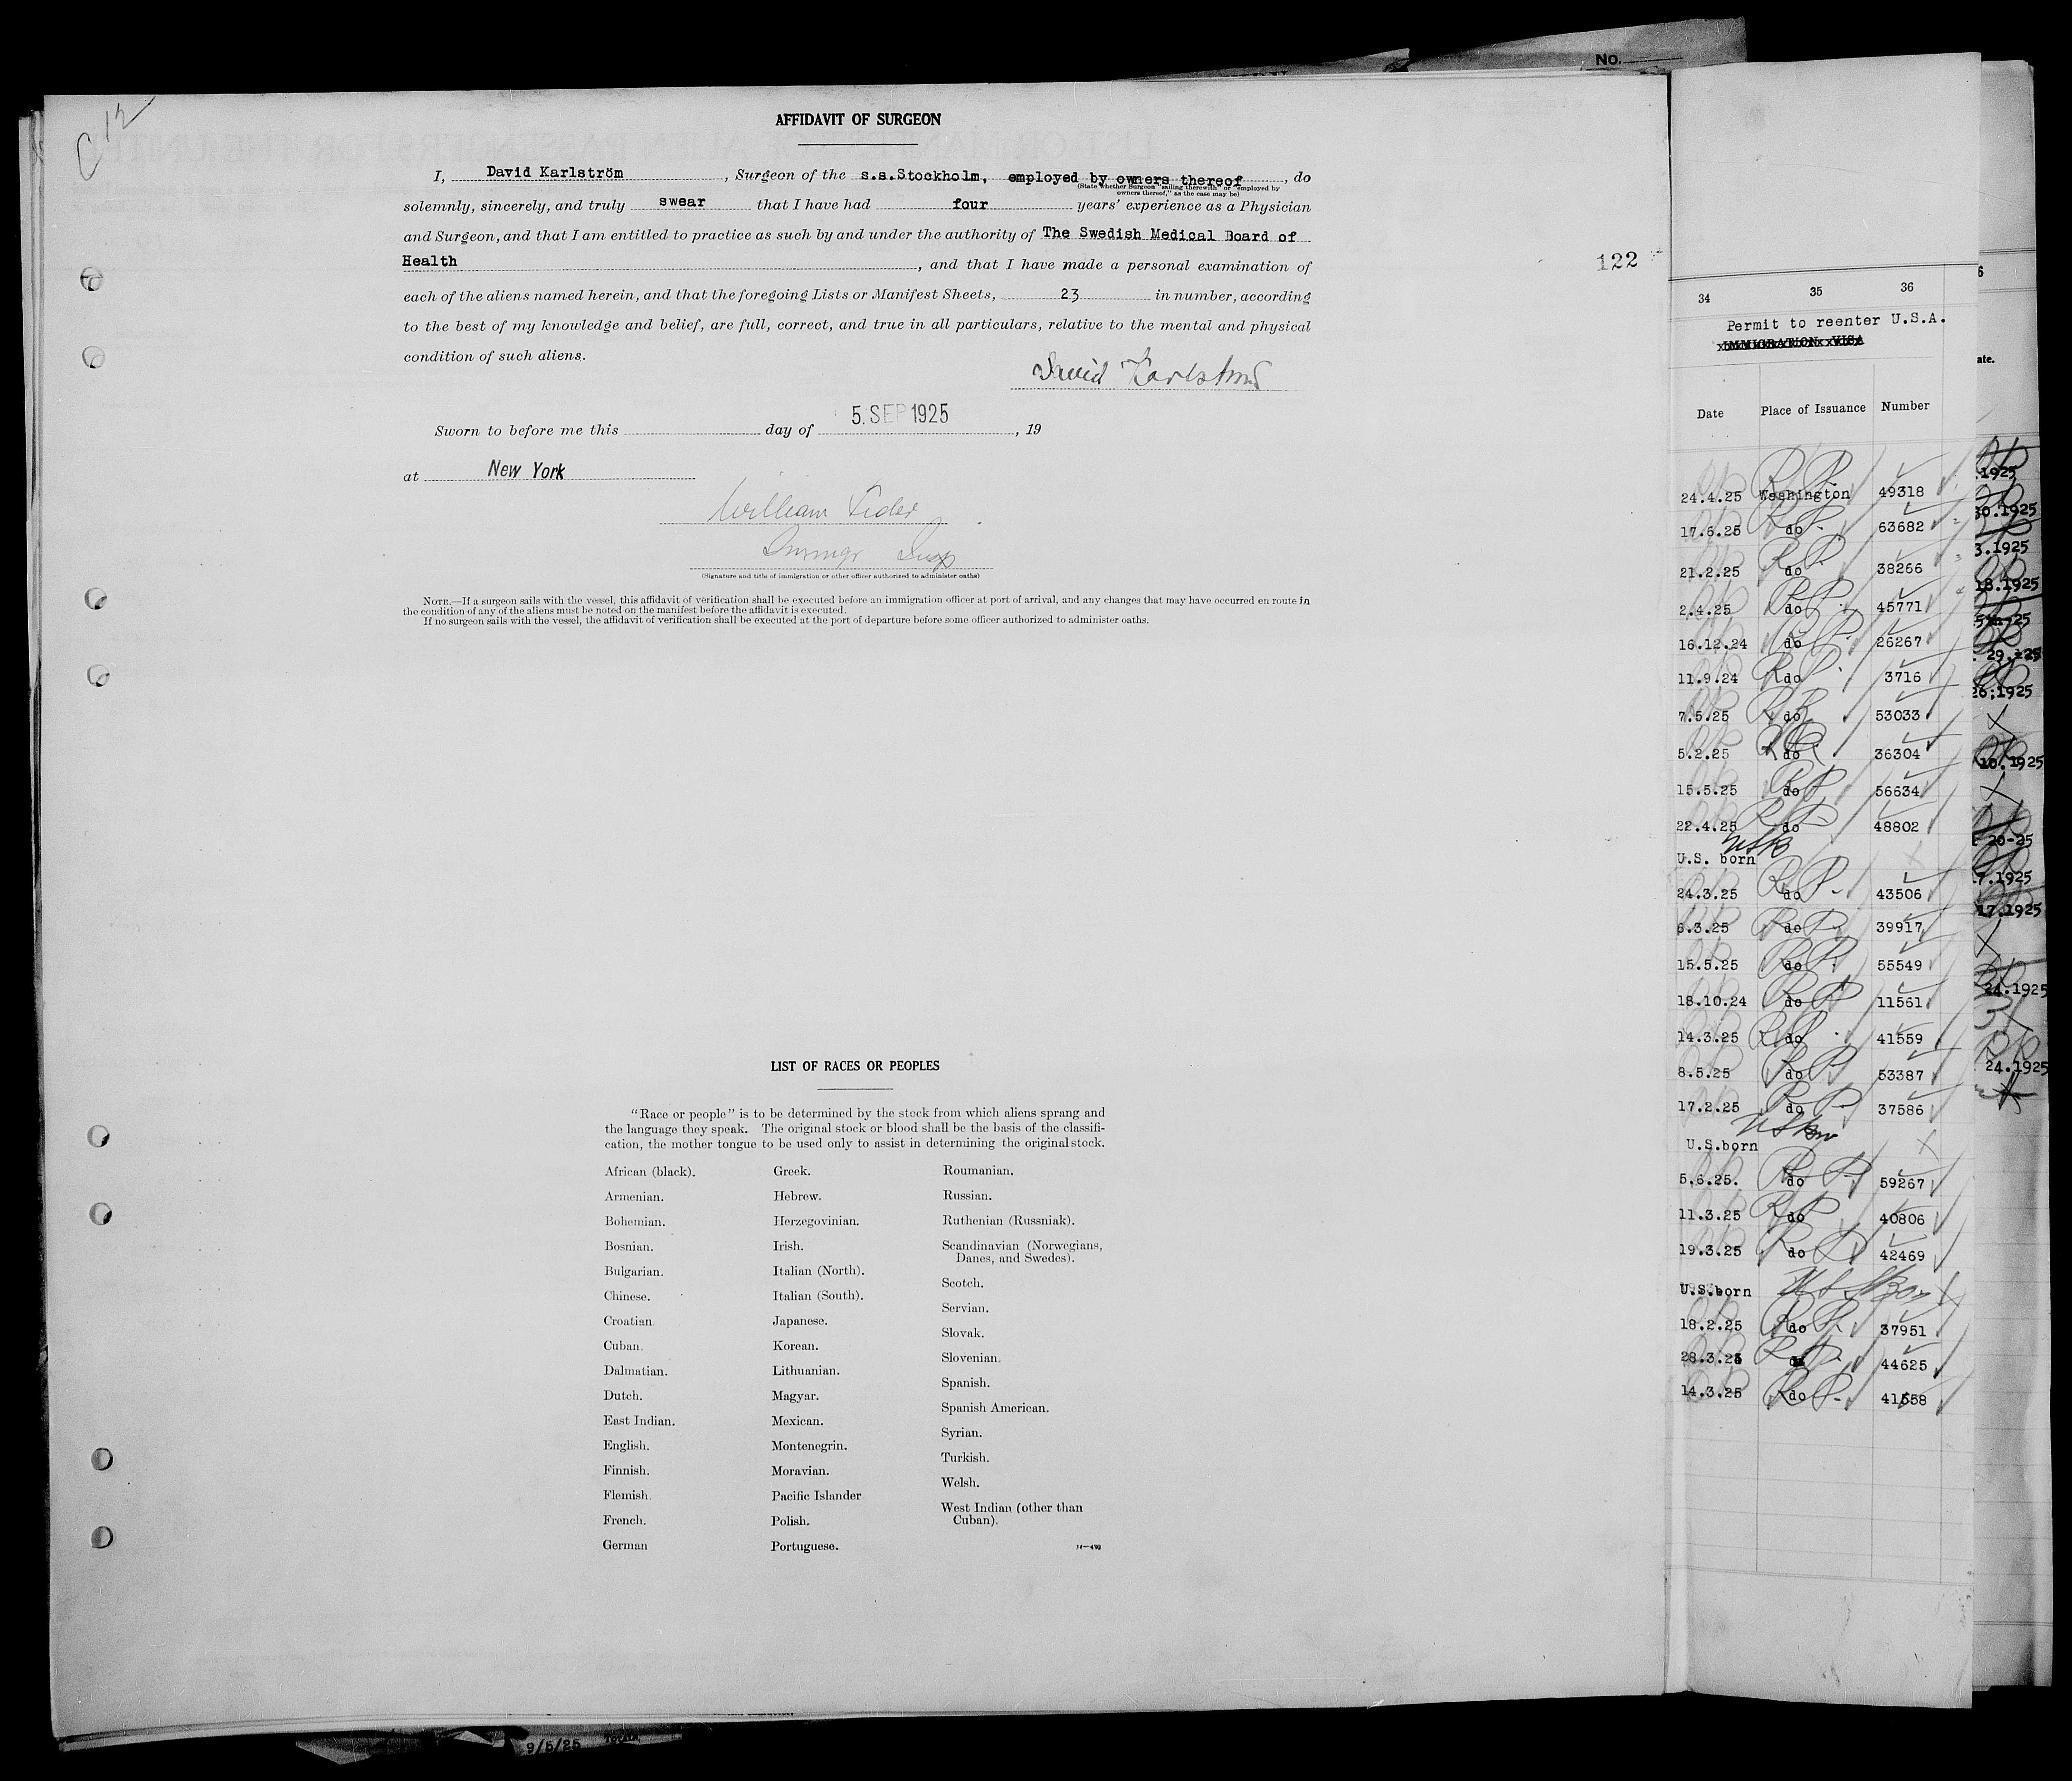 No.
C 12
AFFIDAVIT OF SURGEON
I, David Karlström, Surgeon of the s.s.Stockholm, employed by owners thereof, do
(State whether Surgeon "sailing therewith" or "employed by
owners thereof," as the case may be)
solemnly, sincerely, and truly swear that I have had four years' experience as a Physician
and Surgeon, and that I am entitled to practice as such by and under the authority of The Swedish Medical Board of
Health, and that I have made a personal examination of
each of the aliens named herein, and that the foregoing Lists or Manifest Sheets, 23 in number, according
to the best of my knowledge and belief, are full, correct, and true in all particulars, relative to the mental and physical
condition of such aliens.
David Karlström
Sworn to before me this day of 5 SEP 1925, 19
at New York
William
(Signature and title of immigration or other officer authorized to administer oaths)
NOTE.—If a surgeon sails with the vessel, this affidavit of verification shall be executed before an immigration officer at port of arrival, and any changes that may have occurred en route in
the condition of any of the aliens must be noted on the manifest before the affidavit is executed.
If no surgeon sails with the vessel, the affidavit of verification shall be executed at the port of departure before some officer authorized to administer oaths.
LIST OF RACES OR PEOPLES
"Race or people" is to be determined by the stock from which aliens sprang and
the language they speak. The original stock or blood shall be the basis of the classifi-
cation, the mother tongue to be used only to assist in determining the original stock.
African (black).
Armenian.
Bohemian.
Bosnian.
Bulgarian.
Chinese.
Croatian.
Cuban.
Dalmatian.
Dutch.
East Indian.
English.
Finnish.
Flemish.
French.
German
Greek.
Hebrew.
Herzegovinian.
Irish.
Italian (North).
Italian (South).
Japanese.
Korean.
Lithuanian.
Magyar.
Mexican.
Montenegrin.
Moravian.
Pacific Islander
Polish.
Portuguese.
Roumanian.
Russian.
Ruthenian (Russniak).
Scandinavian (Norwegians,
Danes, and Swedes).
Scotch.
Servian.
Slovak.
Slovenian.
Spanish.
Spanish American.
Syrian.
Turkish.
Welsh.
West Indian (other than
Cuban).
122
34 35 36
Permit to reenter U.S.A.
IMMIGRATION VISA
Date Place of Issuance Number
24.4.25 Washington 49318
17.6.25 do 63682
21.2.25 do 38266
2.4.25 do 45771
16.12.24 do 26267
11.9.24 do 3716
7.5.25 do 53033
5.2.25 do 36304
15.5.25 do 56634
22.4.25 do 48802
U.S. born
24.3.25 do 43506
6.3.25 do 39917
15.5.25 do 55549
18.10.24 do 11561
14.3.25 do 41559
8.5.25 do 53387
17.2.25 do 37586
U.S.born
5.6.25. do 59267
11.3.25 do 40806
19.3.25 do 42469
U.S.born
18.2.25 do 37951
28.3.25 do 44625
14.3.25 do 41558
ate.
.1925
30.1925
3.1925
18.1925
26;1925
10.1925
20-25
17.1925
17.1925
24.1925
24.1925
9/5/25